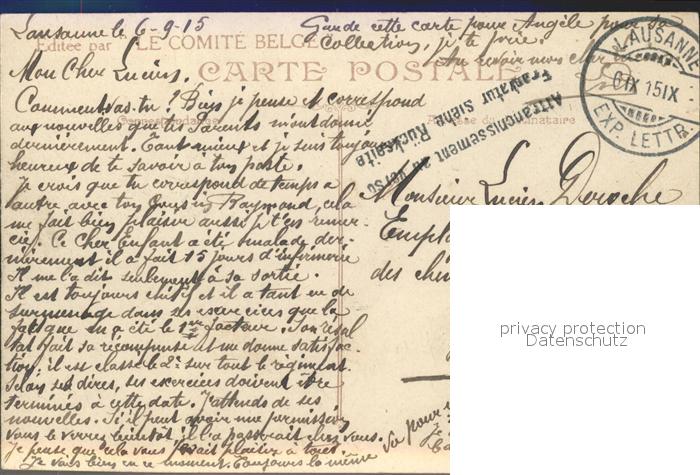 Lausanne le 6-9-15
Garde cette carte pour Angèle pour sa
Collection, je te prie.
Au revoir mon cher
Editée par LE COMITÉ BELGE
CARTE POSTALE
Correspondance
Adresse du Destinataire
LAUSANNE
IX 15 IX
EXP. LETTR.
Affranchissement au verso
Frankatur siehe Rückseite
Mon Cher Lucien.
Comment vas-tu? Bien je pense et correspond
aux nouvelles que tes Parents m'ont donné
dernièrement. Tant mieux et je suis toujours
heureux de te savoir à ton poste.
Je crois que tu correspond de temps à
autre avec ton Raymond, cela
me fait bien plaisir aussi je t'en remer-
cie. Ce Cher Enfant a été malade der-
nièrement il a fait 15 jours d'infirmerie
Il me l'a dit seulement à sa sortie.
Il est toujours chétif et il a tant eu de
surmenage dans ses exercices que la
été le 1er facteur. Son résul
tat fait sa récompense et me donne satisfac-
tion, il est classé le 2e sur tout le régiment.
Selon ses dires, ses exercices doivent être
terminés à cette date. J'attends de ses
nouvelles. Si il peut avoir une permission,
vous le verrez bientôt, il la passerait chez vous.
Je pense que cela vous ferait plaisir à tous.
Je vais bien en ce moment. Toujours la même
Monsieur Lucien Deroche
des
privacy protection
Datenschutz